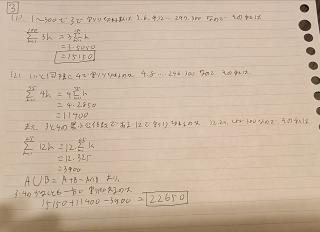 3
(1) 1~300で3で割り切れる数は 3,6,9,12…297,300 なので その和は
Σ 3k = 3Σk
= 3・5050
= 15150
(2) (1)と同様に4で割り切れるのは 4,8…296,300 なので その和は
Σ 4k = 4Σk
= 4・2850
= 11400
また 3と4の最小公倍数である12で割り切れるのは 12,24 … 300 なので その和は
Σ 12k = 12Σk
= 12・325
= 3900
A∪B = A+B-A∩B より
3,4の少なくとも一方で割り切れるのは
15150+11400-3900 = 22650